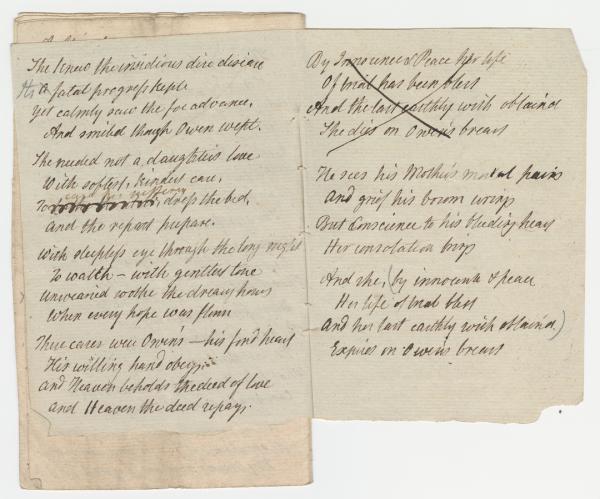 She knew the insidious dire disease
His A fatal progress kept
Yet calmly saw the foe advance,
And smiled though Owen wept.
She needed not a daughter's love
With softest, kindest care,
To dress the bed,
And the repast prepare.
With sleepless eye through the long night
To watch – with gentlest tone
Unwearied soothe the dreary hours
When every hope was flown
These cares were Owen's – his fond heart
His willing hand obeys,
And Heaven beholds the deed of love
And Heaven the deed repays.
By Innocence & Peace her life
Of trial has been blest
And the last earthly wish obtain'd
She dies on Owen's breast
He sees his Mother's mortal pains
And grief his bosom wrings
But Conscience to his bleeding heart
Her consolation brings
And she, (by innocence & peace
Her life of trial blest
And her last earthly wish obtain'd)
Expires on Owen's breast